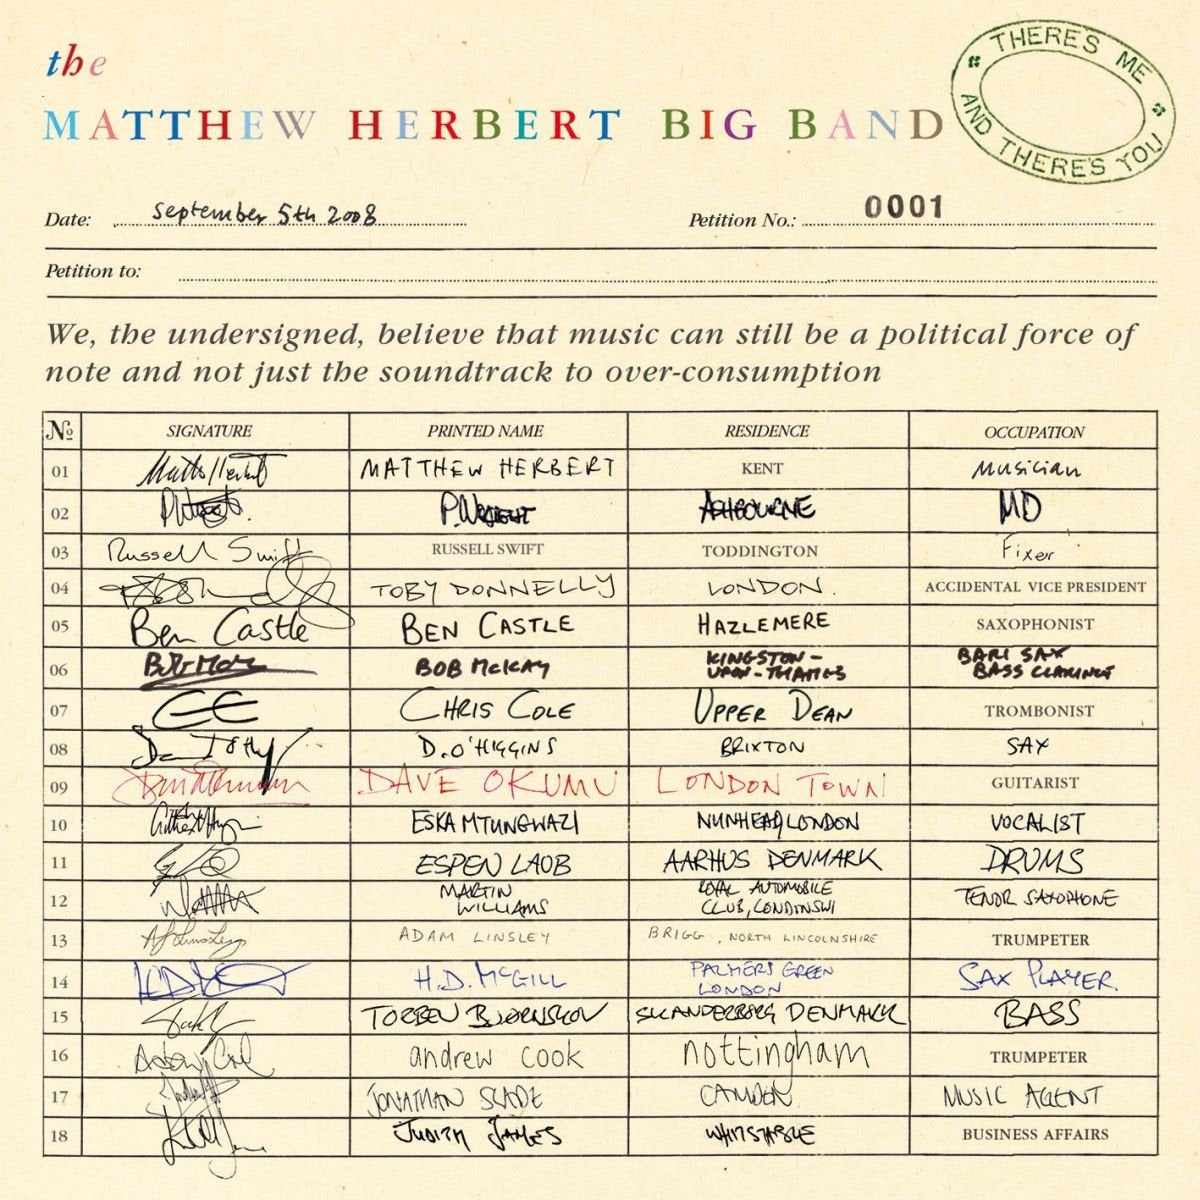 the
MATTHEW HERBERT BIG BAND
THERE'S ME
AND THERE'S YOU
Date: September 5th 2008
Petition No.: 0001
Petition to:
We, the undersigned, believe that music can still be a political force of
note and not just the soundtrack to over-consumption
No SIGNATURE PRINTED NAME RESIDENCE OCCUPATION
01 MATTHEW HERBERT KENT Musician
02 P. WRIGHT ASHBOURNE MD
03 Russell Swift RUSSELL SWIFT TODDINGTON Fixer
04 TOBY DONNELLY LONDON. ACCIDENTAL VICE PRESIDENT
05 Ben Castle BEN CASTLE HAZLEMERE SAXOPHONIST
06 BOB McKAY KINGSTON-
UPON-THAMES BARI SAX
BASS CLARINET
07 CHRIS COLE UPPER DEAN TROMBONIST
08 D. O'HIGGINS BRIXTON SAX
09 DAVE OKUMU LONDON TOWN GUITARIST
10 ESKA MTUNGWAZI NUNHEAD, LONDON VOCALIST
11 ESPEN LAUB AARHUS DENMARK DRUMS
12 MARTIN
WILLIAMS ROYAL AUTOMOBILE
CLUB, LONDON SW1 TENOR SAXOPHONE
13 ADAM LINSLEY BRIGG, NORTH LINCOLNSHIRE TRUMPETER
14 H.D. McGILL PALMERS GREEN
LONDON SAX PLAYER.
15 TORBEN BJØRNSKOV SKANDERBORG DENMARK BASS
16 andrew cook nottingham TRUMPETER
17 JONATHAN SLADE CAMDEN MUSIC AGENT
18 JUDITH JAMES WHITSTABLE BUSINESS AFFAIRS